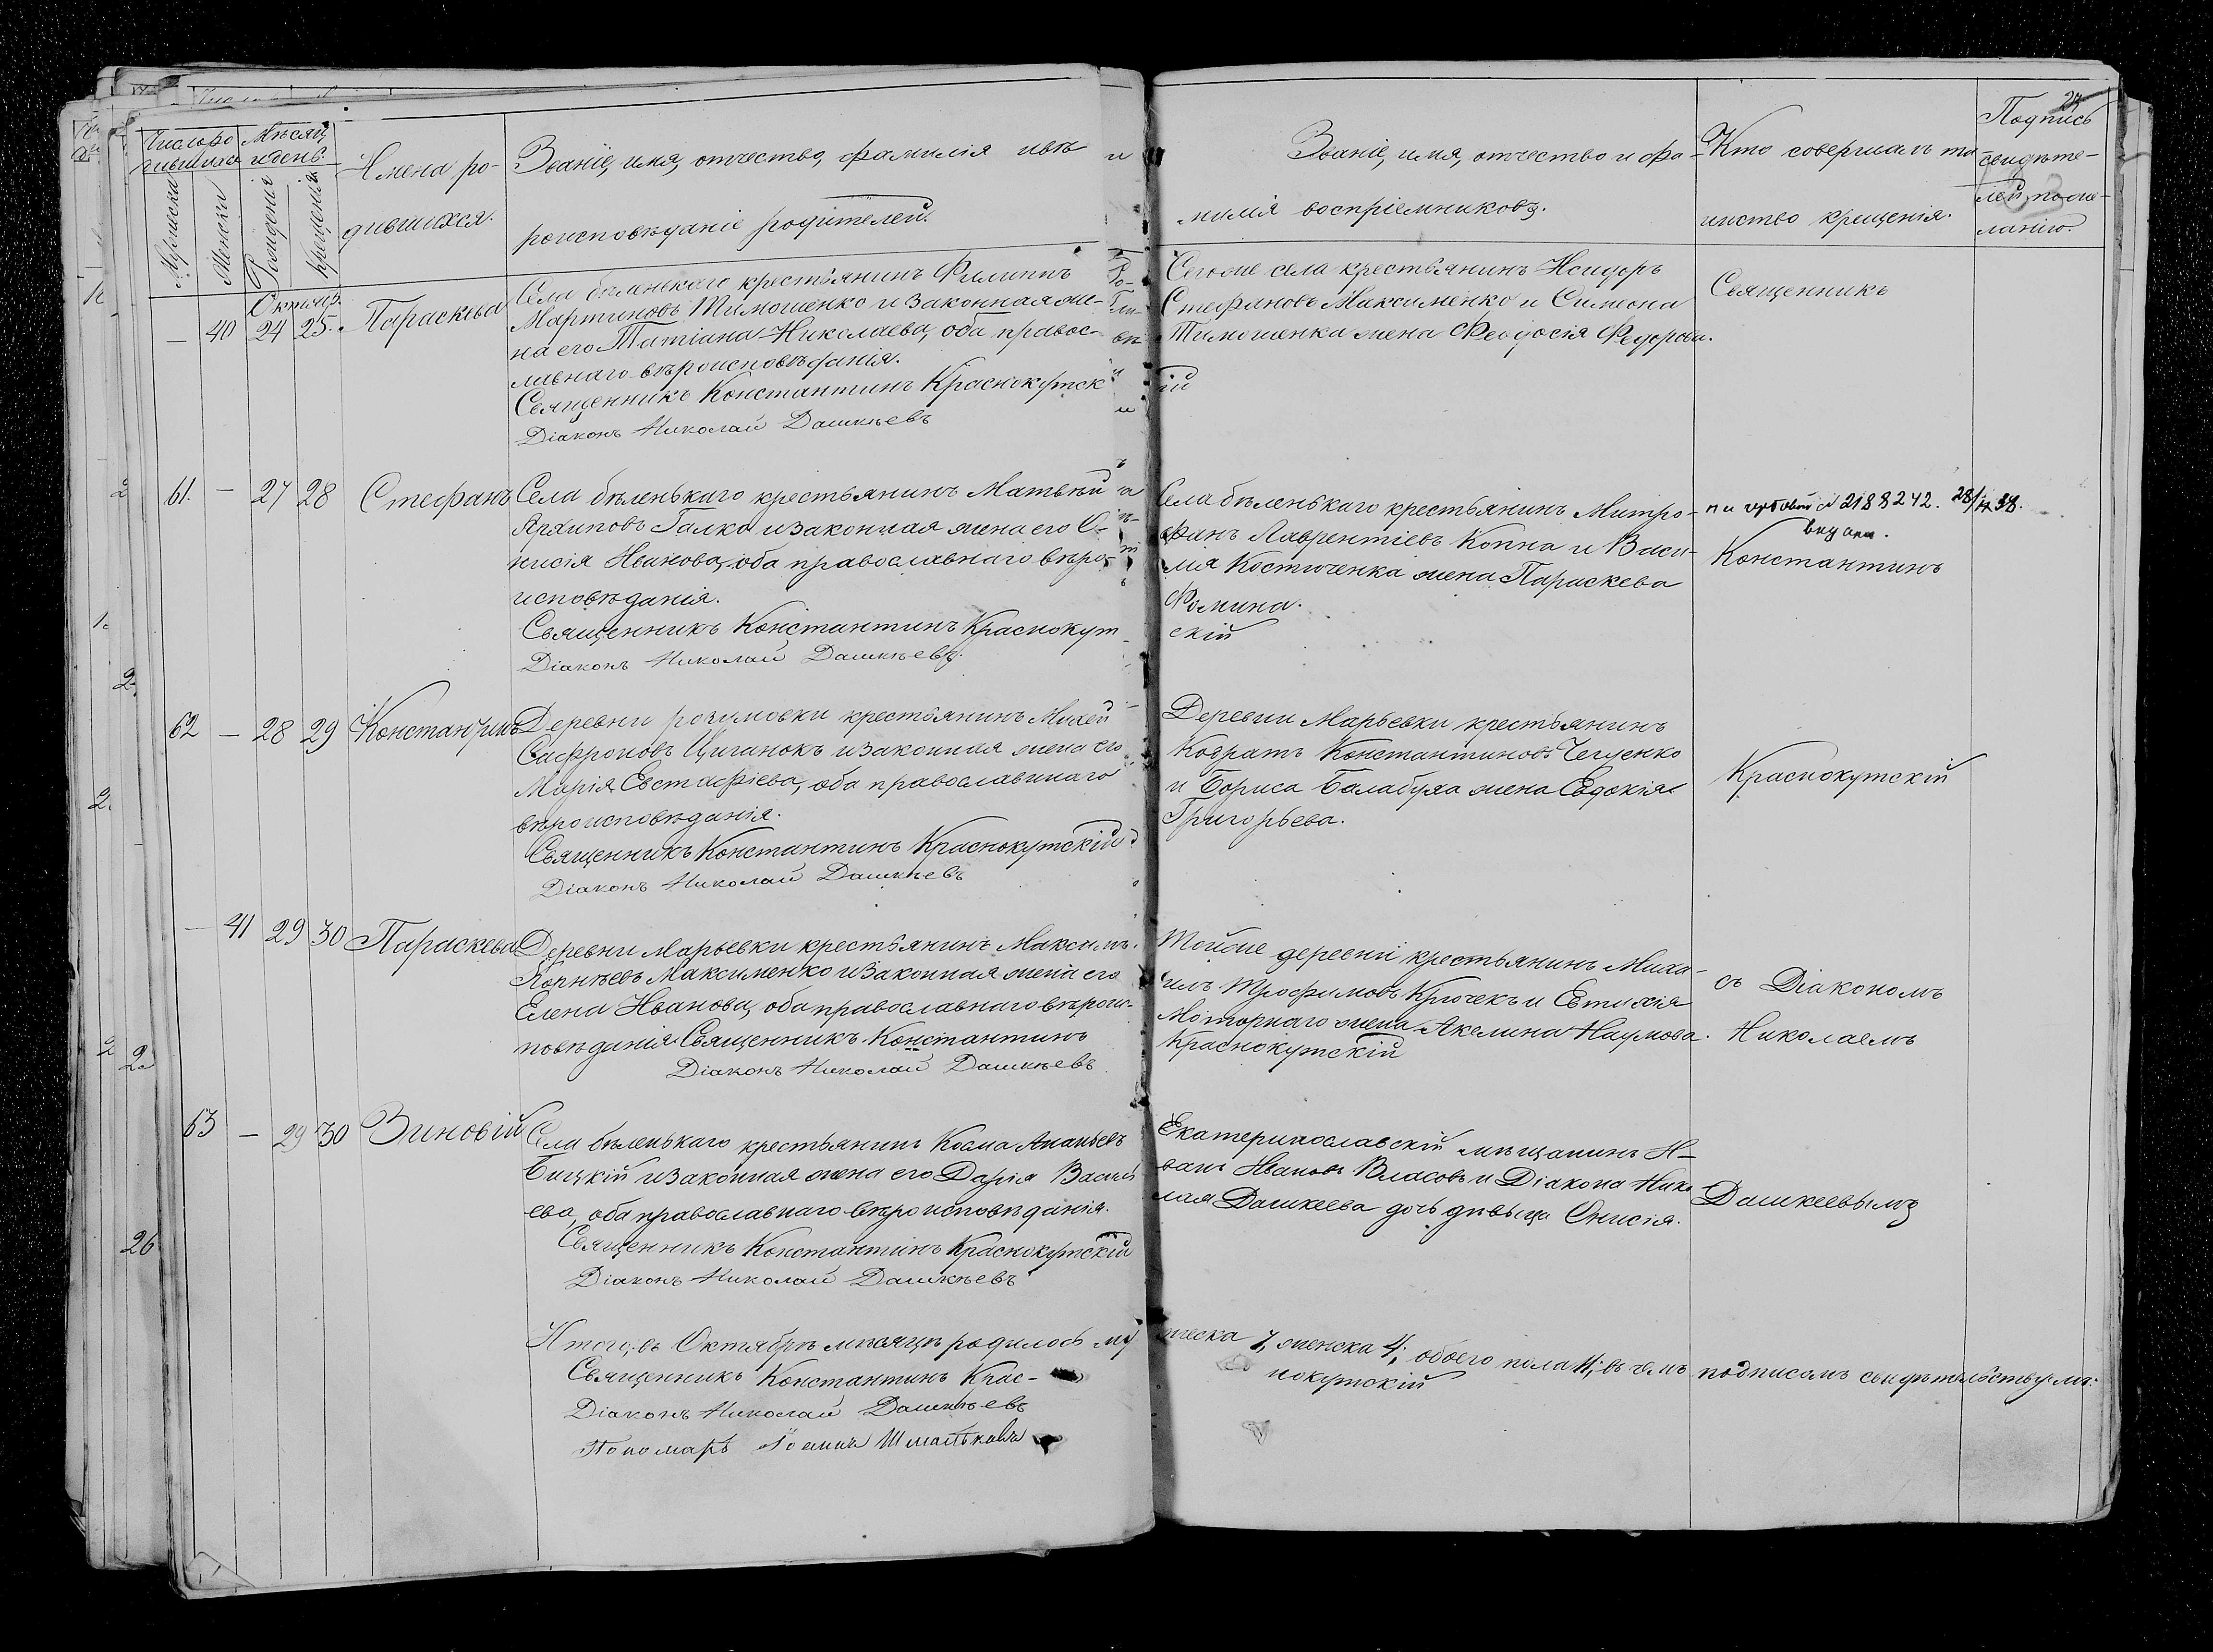 Число ро
дившихся
Мѣсяцъ
и день.
Мужска
Женска
Рожденія
Крещенія
Имена ро-
дившихся.
Званіе, имя, отчество, фамилія и вѣ
роисповѣданіе родителей.
Званіе, имя, отчество и фа-
милія воспріемниковъ.
Кто совершалъ та-
инство крещенія.
Подпись
свидѣте-
лей по же-
ланію.
Октябр.
— 40 24 25. Параскева
Села бѣленькаго крестьянинъ Филиппъ
Мартиновъ Тимошенко и законная же-
на его Татіана Николаева, оба правос-
лавнаго вѣроисповѣданія.
Священникъ Константинъ Краснокутск
Діаконъ Николай Дашкѣевъ
Сегоже села крестьянинъ Исидоръ
Стефановъ Максименко и Симеона
Тимошенка жена Феодосія Федорова.
ій
Священникъ
61. — 27 28 Стефанъ
Села бѣленькаго крестьянинъ Матвѣй
Архиповъ Галка и законная жена его О-
нисія Иванова, оба православнаго вѣро-
исповѣданія.
Священникъ Константинъ Краснокут
Діаконъ Николай Дашкѣевъ.
Села бѣленькаго крестьянинъ Митро-
фанъ Лаврентіевъ Коппа и Васи-
лія Костюченка жена Параскева
Фомина.
скій
2188242.
Константинъ
62 — 28 29 Константинъ
Деревни розумовки крестьянинъ Михей
Сафроновъ Циганокъ и законная жена его
Марія Евстафіева, оба православнаго
вѣроисповѣданія.
Священникъ Константинъ Краснокутскій
Діаконъ Николай Дашкѣевъ
Деревни Марьевки крестьянинъ
Кодратъ Константиновъ
и Бориса Балабуха жена Евдокія
Григорьева.
Краснокутскій
— 41 29 30 Параскева
Деревни марьевки крестьянинъ Максимъ
Корнѣевъ Максименко и законная жена его
Елена Иванова, оба православнаго вѣроис-
повѣданія. Священникъ Константинъ
Діаконъ Николай Дашкѣевъ
Тойже деревни крестьянинъ Миха-
илъ Трофимовъ Крючекъ и Евтихія
Моторнаго жена Акелина Наумова.
Краснокутскій
съ Діакономъ
Николаемъ
63 — 29 30 Зиновій
Села бѣленькаго крестьянинъ Косма Ананьевъ
Бицкій и законная жена его Дарія Василь
ева, оба православнаго вѣроисповѣданія.
Священникъ Константинъ Краснокутскій
Діаконъ Николай Дашкѣевъ
Екатеринославскій мѣщанинъ И-
ванъ Ивановъ Власовъ и Діакона Нико
лая Дашкеева дочь дѣвица Онисія.
Дашкеевымъ
Итого, въ Октябрѣ мѣсяцѣ родилось му
жеска 7, женска 4; обоего пола 11; въ чемъ подписомъ свидѣтельствуемъ:
Священникъ Константинъ Крас-
нокутскій
Діаконъ Николай Дашкѣевъ
Пономарь